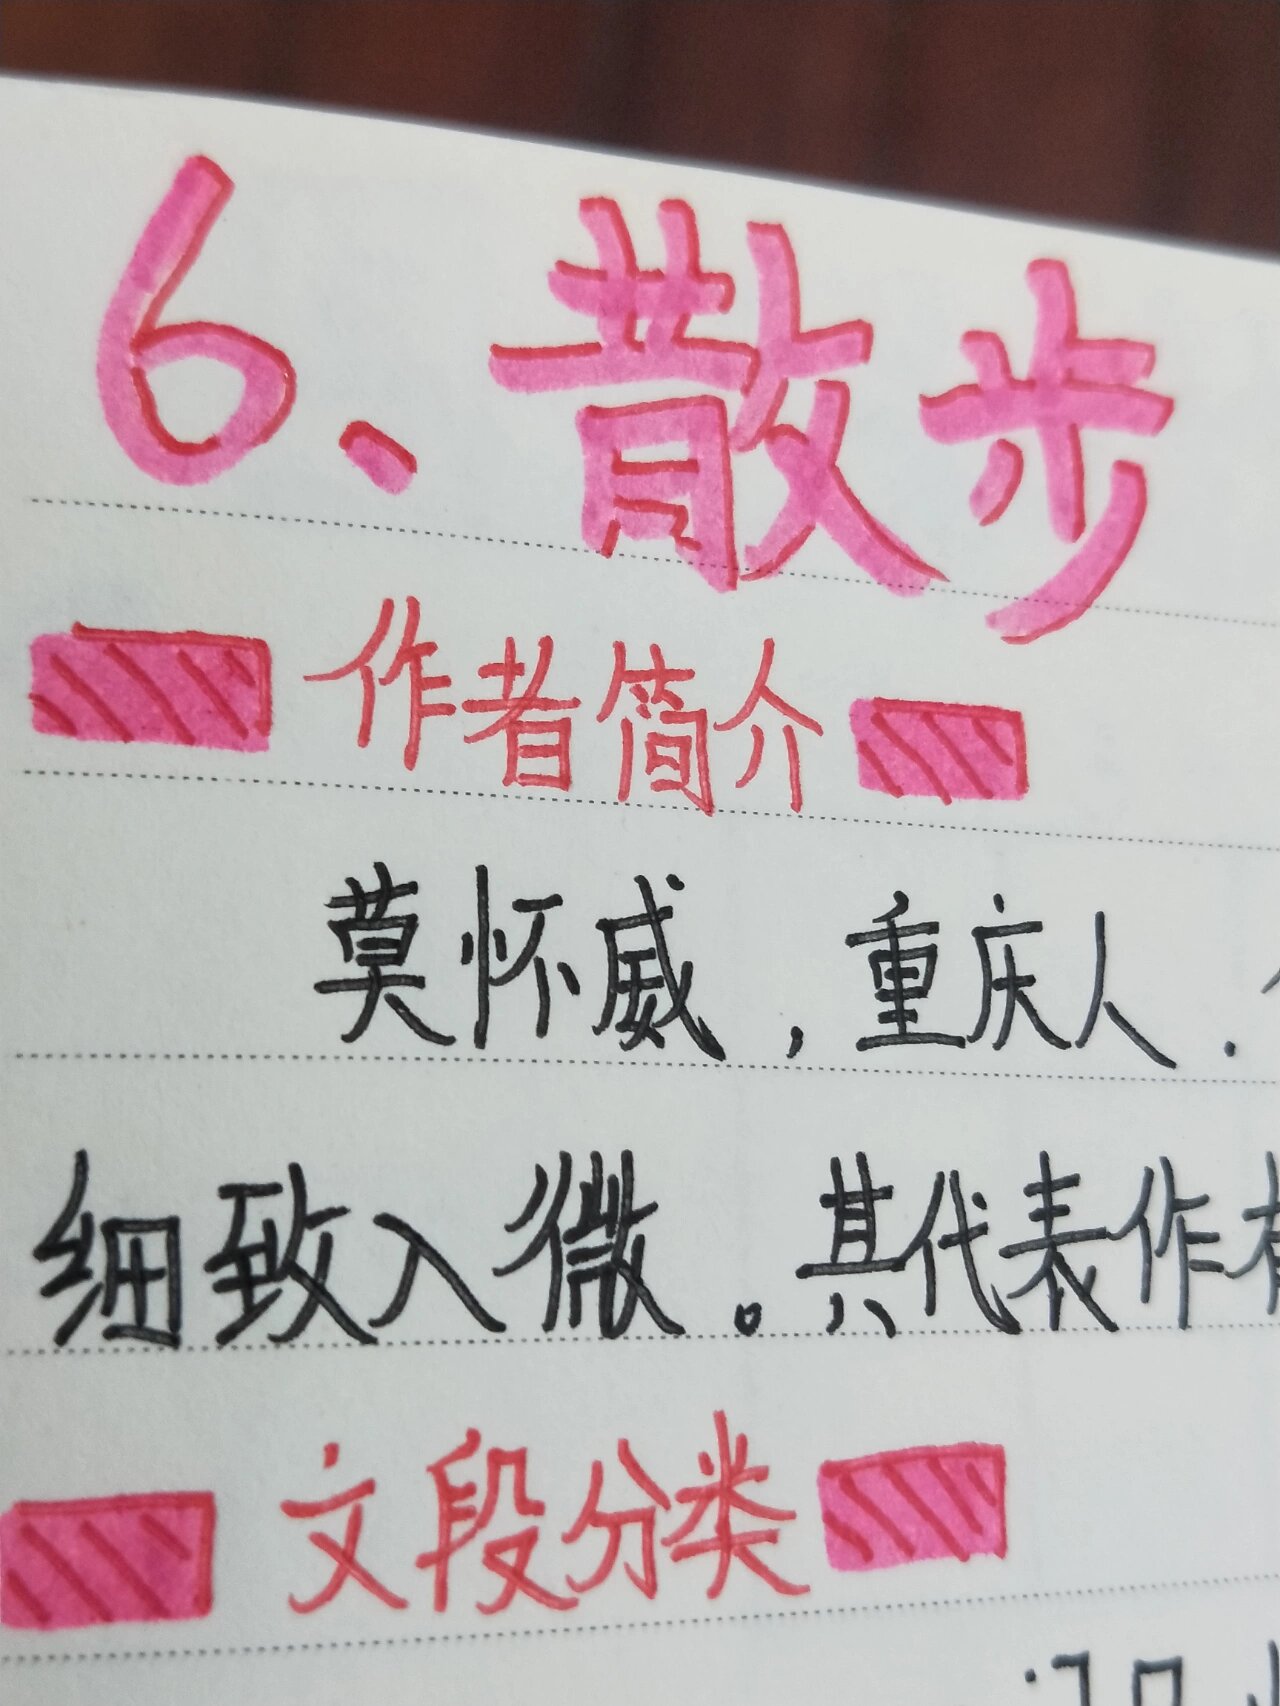 6、散步
作者简介
莫怀威，重庆人.
细致入微。其代表作有
文段分类